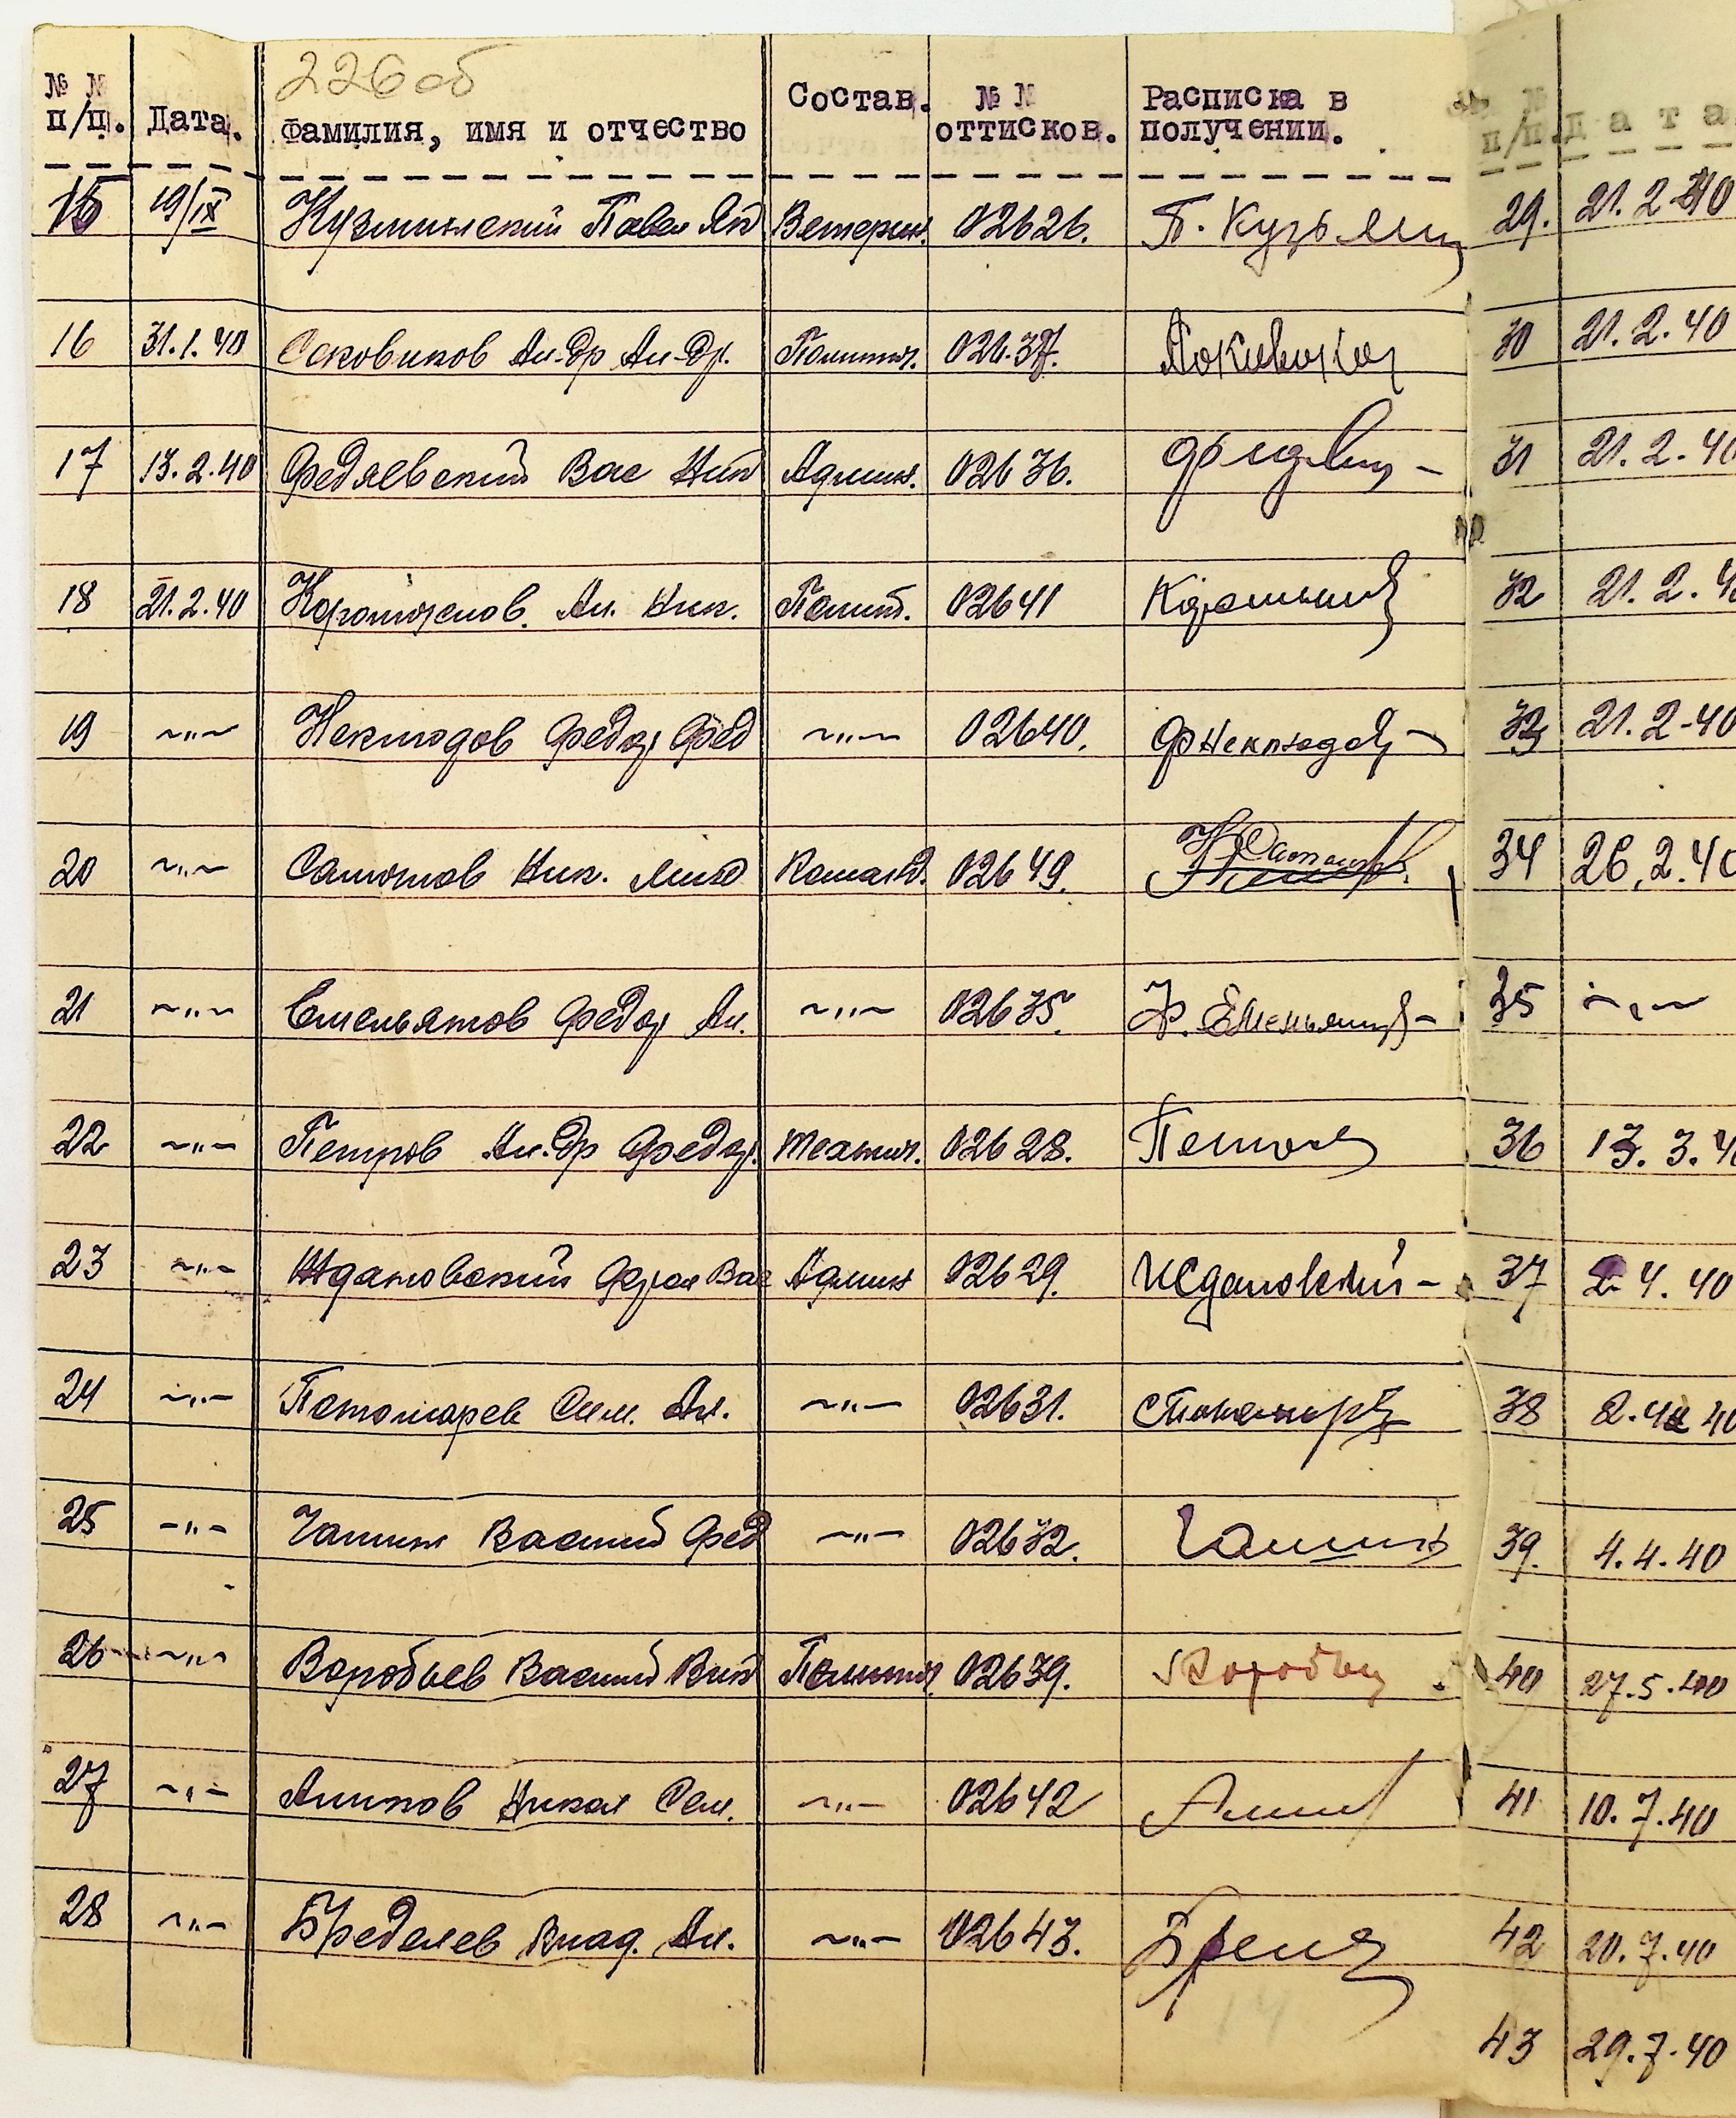 226об
№ № п/п. Дата. Фамилия, имя и отчество Состав. № № оттисков. Расписка в получении. № п/п. Дата
15 19/IX Кузминский Павел Ян Ветерин. 02626. П. Кузьмин 29. 21.2.40
16 31.1.40 Соковиков Ал-др Ал-др. Политич. 02637. 30 21.2.40
17 13.2.40 Федяевский Вас Ник Админ. 02636. 31 21.2.40
18 21.2.40 Ал. Ник. Полит. 02641 32 21.2.4
19 ~"~ Неклюдов Федор Фед ~"~ 02640. ФНеклюдов 33 21.2-40
20 ~"~ Самотов Ник. Команд. 02649. 34 26.2.40
21 ~"~ Емельянов Федор Ал. ~"~ 02635. Ф. Емельянов 35 ~"~
22 ~"~ Петров Ал-др Федор. Технич. 02628. Петров 36 13.3.4
23 ~"~ Ждановский Вас Админ 02629. Ждановский 37 2.4.40
24 ~"~ Пономарев Сем. Ал. ~"~ 02631. СПономарев 38 2.4.40
25 -"- Чашин Василий Фед ~"~ 02632. Чашин 39. 4.4.40
26 ~"~ Воробьев Василий Вик Политич. 02639. Воробьев 40 27.5.40
27 ~"~ Ашиков Никол Сем. ~"~ 02642 41 10.7.40
28 ~"~ Бределев Влад. Ал. ~"~ 02643. 42 20.7.40
43 29.7.40